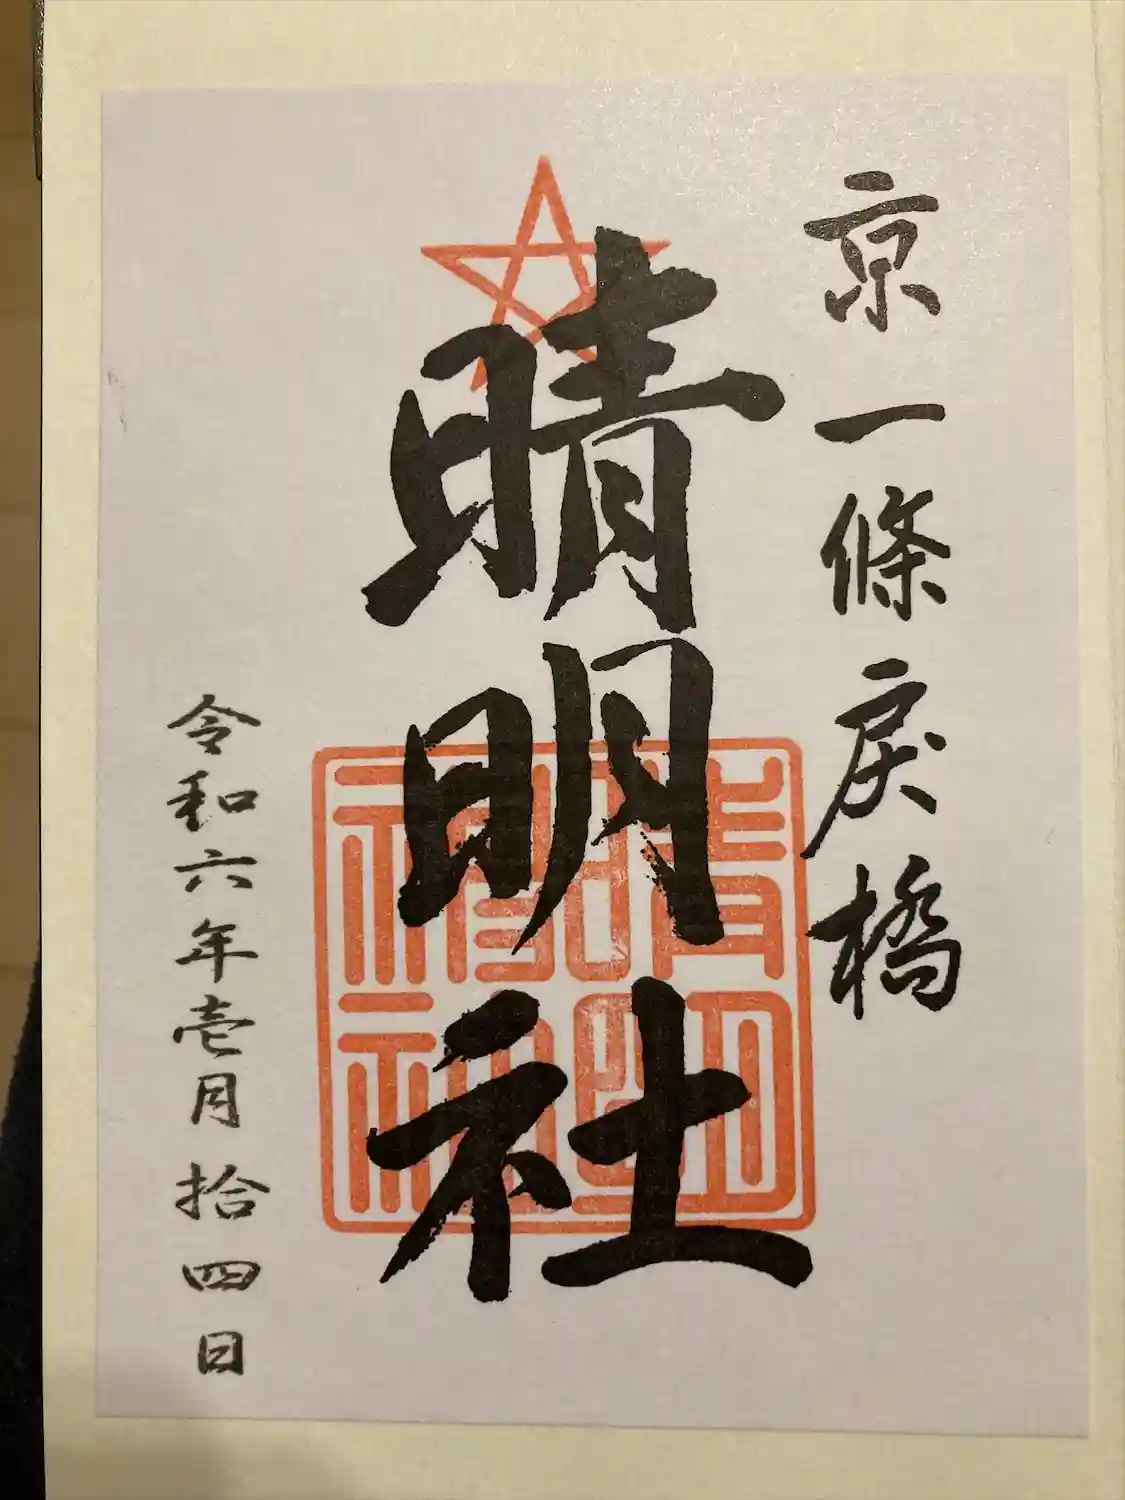 京一條戻橋
晴明社
晴明神社
令和六年壱月拾四日